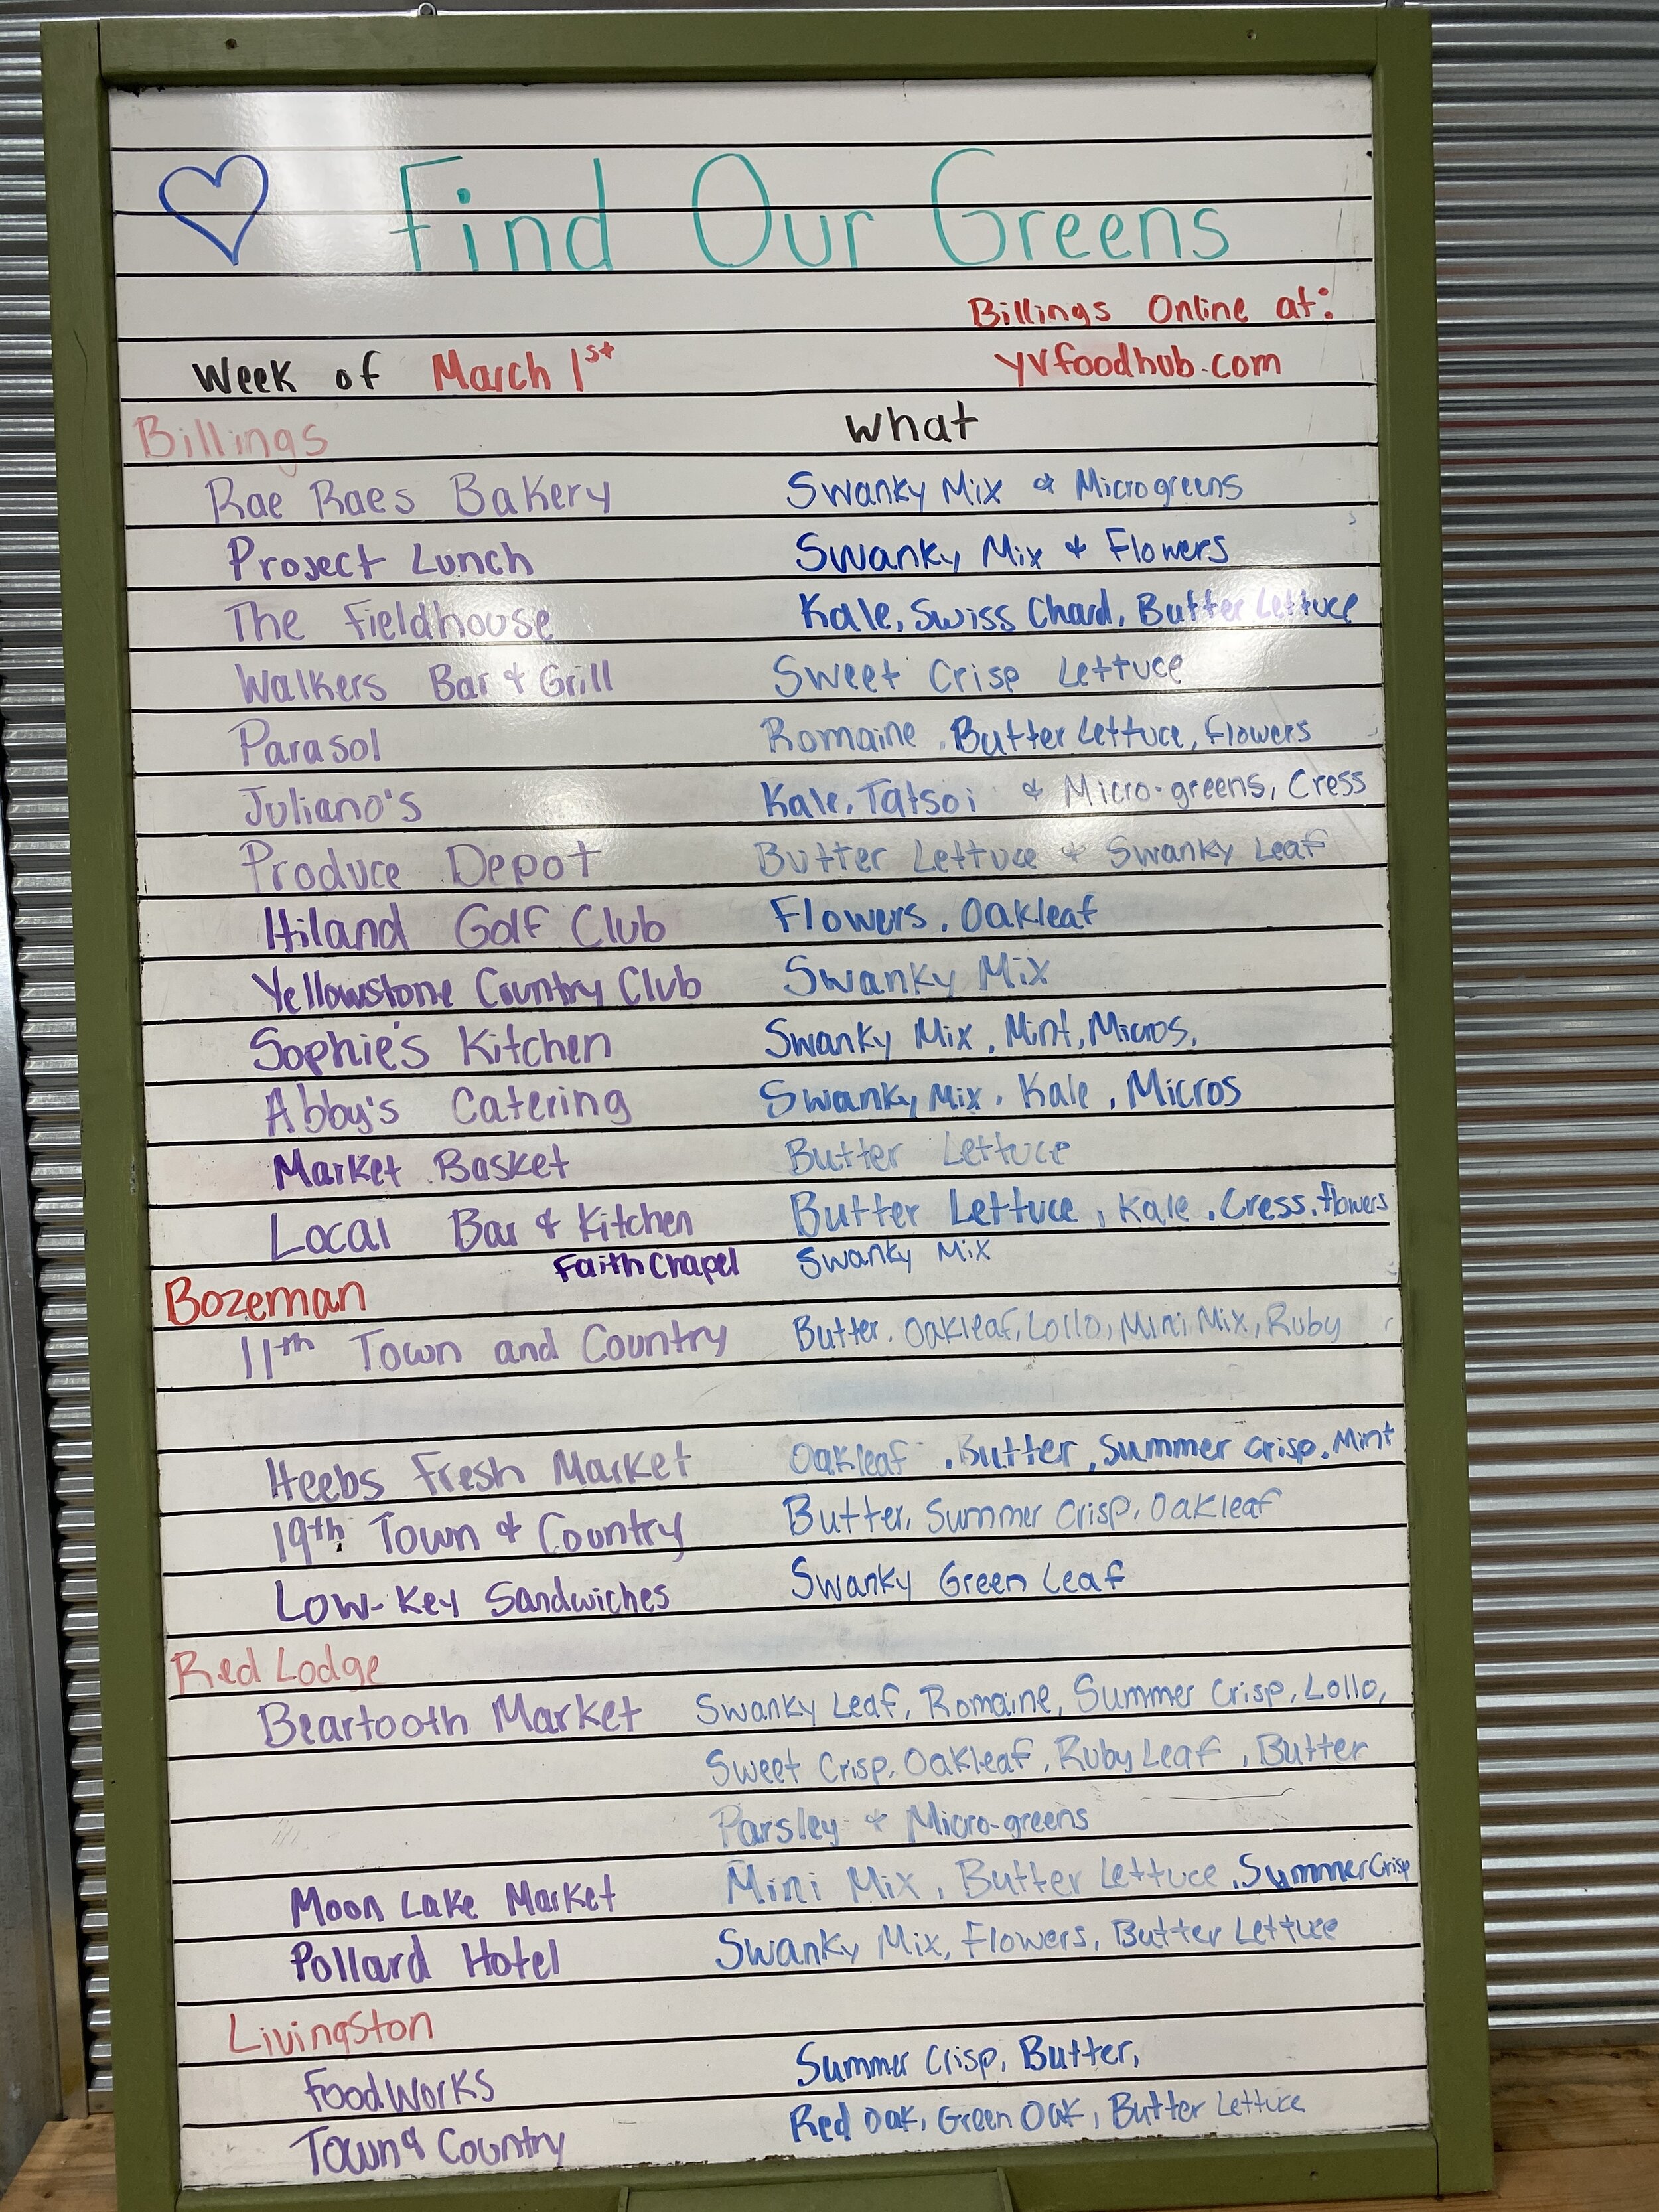 Find Our Greens
Billings Online at:
Week of March 1st yvfoodhub.com
Billings what
Rae Raes Bakery Swanky Mix & Microgreens
Project Lunch Swanky Mix & Flowers
The Fieldhouse Kale, Swiss Chard, Butter Lettuce
Walkers Bar & Grill Sweet Crisp Lettuce
Parasol Romaine, Butter Lettuce, Flowers
Juliano's Kale, Tatsoi & Micro-greens, Cress
Produce Depot Butter Lettuce & Swanky Leaf
Hiland Golf Club Flowers, Oakleaf
Yellowstone Country Club Swanky Mix
Sophie's Kitchen Swanky Mix, Mint, Micros,
Abby's Catering Swanky Mix, Kale, Micros
Market Basket Butter Lettuce
Local Bar & Kitchen Butter Lettuce, Kale, Cress, flowers
Faith Chapel Swanky Mix
Bozeman
11th Town and Country Butter, Oakleaf, Lollo, Mini Mix, Ruby
Heebs Fresh Market Oakleaf, Butter, Summer Crisp, Mint
19th Town & Country Butter, Summer Crisp, Oakleaf
Low-Key Sandwiches Swanky Green Leaf
Red Lodge
Beartooth Market Swanky Leaf, Romaine, Summer Crisp, Lollo,
Sweet Crisp, Oakleaf, Ruby Leaf, Butter
Parsley & Micro-greens
Moon Lake Market Mini Mix, Butter Lettuce, Summer Crisp
Pollard Hotel Swanky Mix, Flowers, Butter Lettuce
Livingston
FoodWorks Summer Crisp, Butter,
Town & Country Red Oak, Green Oak, Butter Lettuce